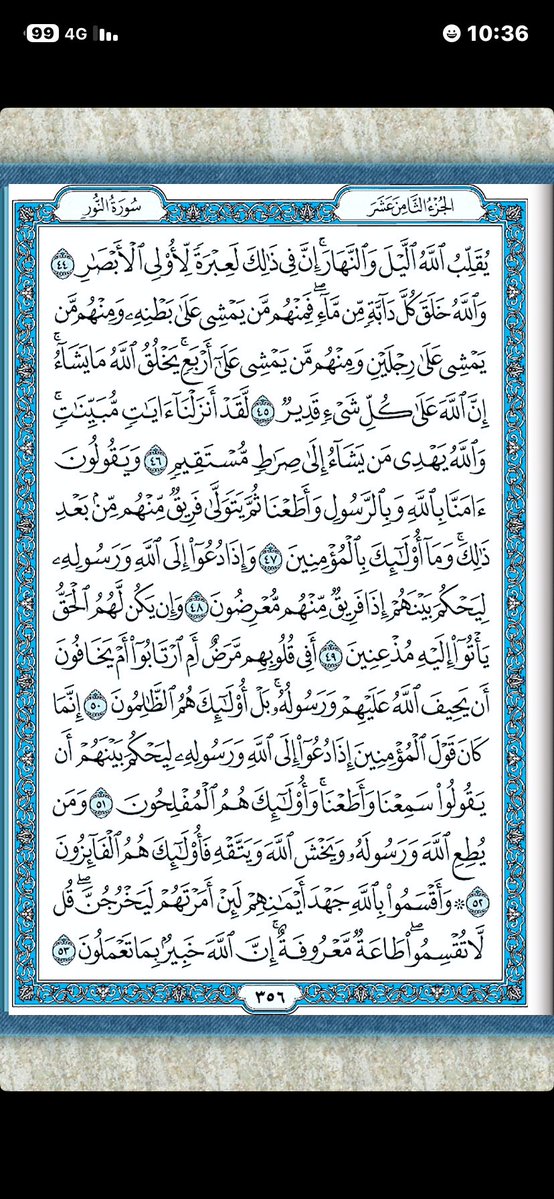 99 4G 10:36
الجزء الثامن عشر سورة النور
يُقَلِّبُ ٱللَّهُ ٱلَّيۡلَ وَٱلنَّهَارَۚ إِنَّ فِي ذَٰلِكَ لَعِبۡرَةٗ لِّأُوْلِي ٱلۡأَبۡصَٰرِ ٤٤
وَٱللَّهُ خَلَقَ كُلَّ دَآبَّةٖ مِّن مَّآءٖۖ فَمِنۡهُم مَّن يَمۡشِي عَلَىٰ بَطۡنِهِۦ وَمِنۡهُم مَّن
يَمۡشِي عَلَىٰ رِجۡلَيۡنِ وَمِنۡهُم مَّن يَمۡشِي عَلَىٰٓ أَرۡبَعٖۚ يَخۡلُقُ ٱللَّهُ مَا يَشَآءُۚ
إِنَّ ٱللَّهَ عَلَىٰ كُلِّ شَيۡءٖ قَدِيرٞ ٤٥ لَّقَدۡ أَنزَلۡنَآ ءَايَٰتٖ مُّبَيِّنَٰتٖۚ
وَٱللَّهُ يَهۡدِي مَن يَشَآءُ إِلَىٰ صِرَٰطٖ مُّسۡتَقِيمٖ ٤٦ وَيَقُولُونَ
ءَامَنَّا بِٱللَّهِ وَبِٱلرَّسُولِ وَأَطَعۡنَا ثُمَّ يَتَوَلَّىٰ فَرِيقٞ مِّنۡهُم مِّنۢ بَعۡدِ
ذَٰلِكَۚ وَمَآ أُوْلَٰٓئِكَ بِٱلۡمُؤۡمِنِينَ ٤٧ وَإِذَا دُعُوٓاْ إِلَى ٱللَّهِ وَرَسُولِهِۦ
لِيَحۡكُمَ بَيۡنَهُمۡ إِذَا فَرِيقٞ مِّنۡهُم مُّعۡرِضُونَ ٤٨ وَإِن يَكُن لَّهُمُ ٱلۡحَقُّ
يَأۡتُوٓاْ إِلَيۡهِ مُذۡعِنِينَ ٤٩ أَفِي قُلُوبِهِم مَّرَضٌ أَمِ ٱرۡتَابُوٓاْ أَمۡ يَخَافُونَ
أَن يَحِيفَ ٱللَّهُ عَلَيۡهِمۡ وَرَسُولُهُۥۚ بَلۡ أُوْلَٰٓئِكَ هُمُ ٱلظَّٰلِمُونَ ٥٠ إِنَّمَا
كَانَ قَوۡلَ ٱلۡمُؤۡمِنِينَ إِذَا دُعُوٓاْ إِلَى ٱللَّهِ وَرَسُولِهِۦ لِيَحۡكُمَ بَيۡنَهُمۡ أَن
يَقُولُواْ سَمِعۡنَا وَأَطَعۡنَاۚ وَأُوْلَٰٓئِكَ هُمُ ٱلۡمُفۡلِحُونَ ٥١ وَمَن
يُطِعِ ٱللَّهَ وَرَسُولَهُۥ وَيَخۡشَ ٱللَّهَ وَيَتَّقۡهِ فَأُوْلَٰٓئِكَ هُمُ ٱلۡفَآئِزُونَ
٥٢ ۞ وَأَقۡسَمُواْ بِٱللَّهِ جَهۡدَ أَيۡمَٰنِهِمۡ لَئِنۡ أَمَرۡتَهُمۡ لَيَخۡرُجُنَّۖ قُل
لَّا تُقۡسِمُواْۖ طَاعَةٞ مَّعۡرُوفَةٌۚ إِنَّ ٱللَّهَ خَبِيرُۢ بِمَا تَعۡمَلُونَ ٥٣
٣٥٦